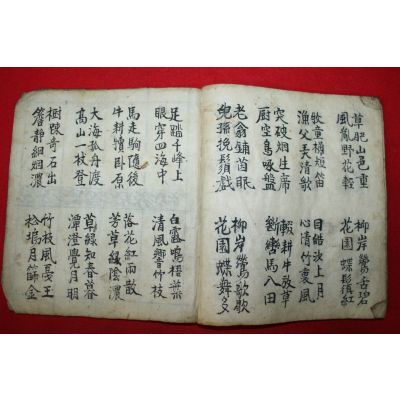 草肥山邑重
風亂野花輕
牧童橫短笛
漁父弄清歌
突破烟生席
厨空鳥啄盤
老翁鋪首眠
兒孫挽鬚戲
柳岸鶯舌碧
花園蝶鬚紅
目皓沙上月
心清竹裏風
輟耕牛放草
斷轡馬入田
柳岸鶯歌歌
花園蝶舞多
足踏千峰上
眼穿四海中
馬走駒随後
牛耕犢卧原
大海孤舟渡
高山一枝登
樹踈奇石出
簷静細烟濃
白露鳴梧葉
清風響竹枝
落花紅雨散
芳草緑陰濃
草緑知春暮
潭澄覺月明
竹枝風戞玉
松塢月篩金